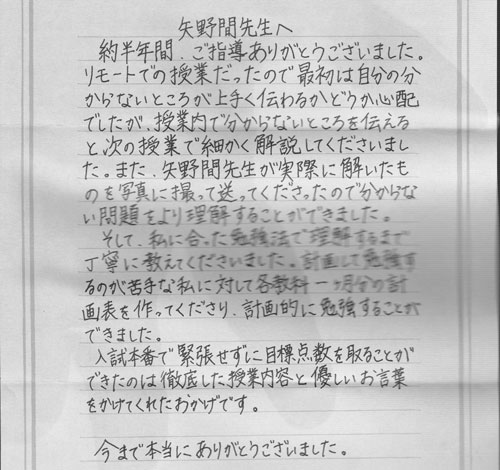 矢野間先生へ
約半年間、ご指導ありがとうございました。
リモートでの授業だったので最初は自分の分
からないところが上手く伝わるかどうか心配
でしたが、授業内で分からないところを伝える
と次の授業で細かく解説してくださいまし
た。また、矢野間先生が実際に解いたも
のを写真に撮って送ってくださったので分からな
い問題をより理解することができました。
そして、私に合った勉強法で理解するまで
丁寧に教えてくださいました。計画して勉強す
るのが苦手な私に対して各教科一ヶ月分の計
画表を作ってくださり、計画的に勉強することが
できました。
入試本番で緊張せずに目標点数を取ることが
できたのは徹底した授業内容と優しいお言葉
をかけてくれたおかげです。
今まで本当にありがとうございました。